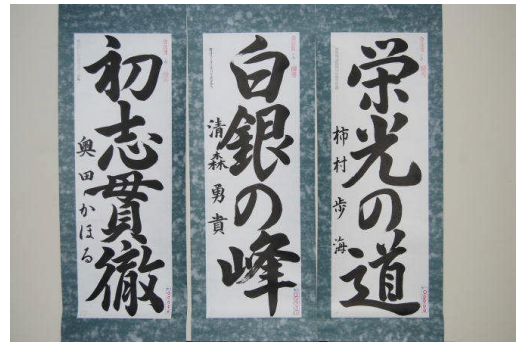 栄光の道
柿村歩海
白銀の峰
清森勇貴
初志貫徹
奥田かほる